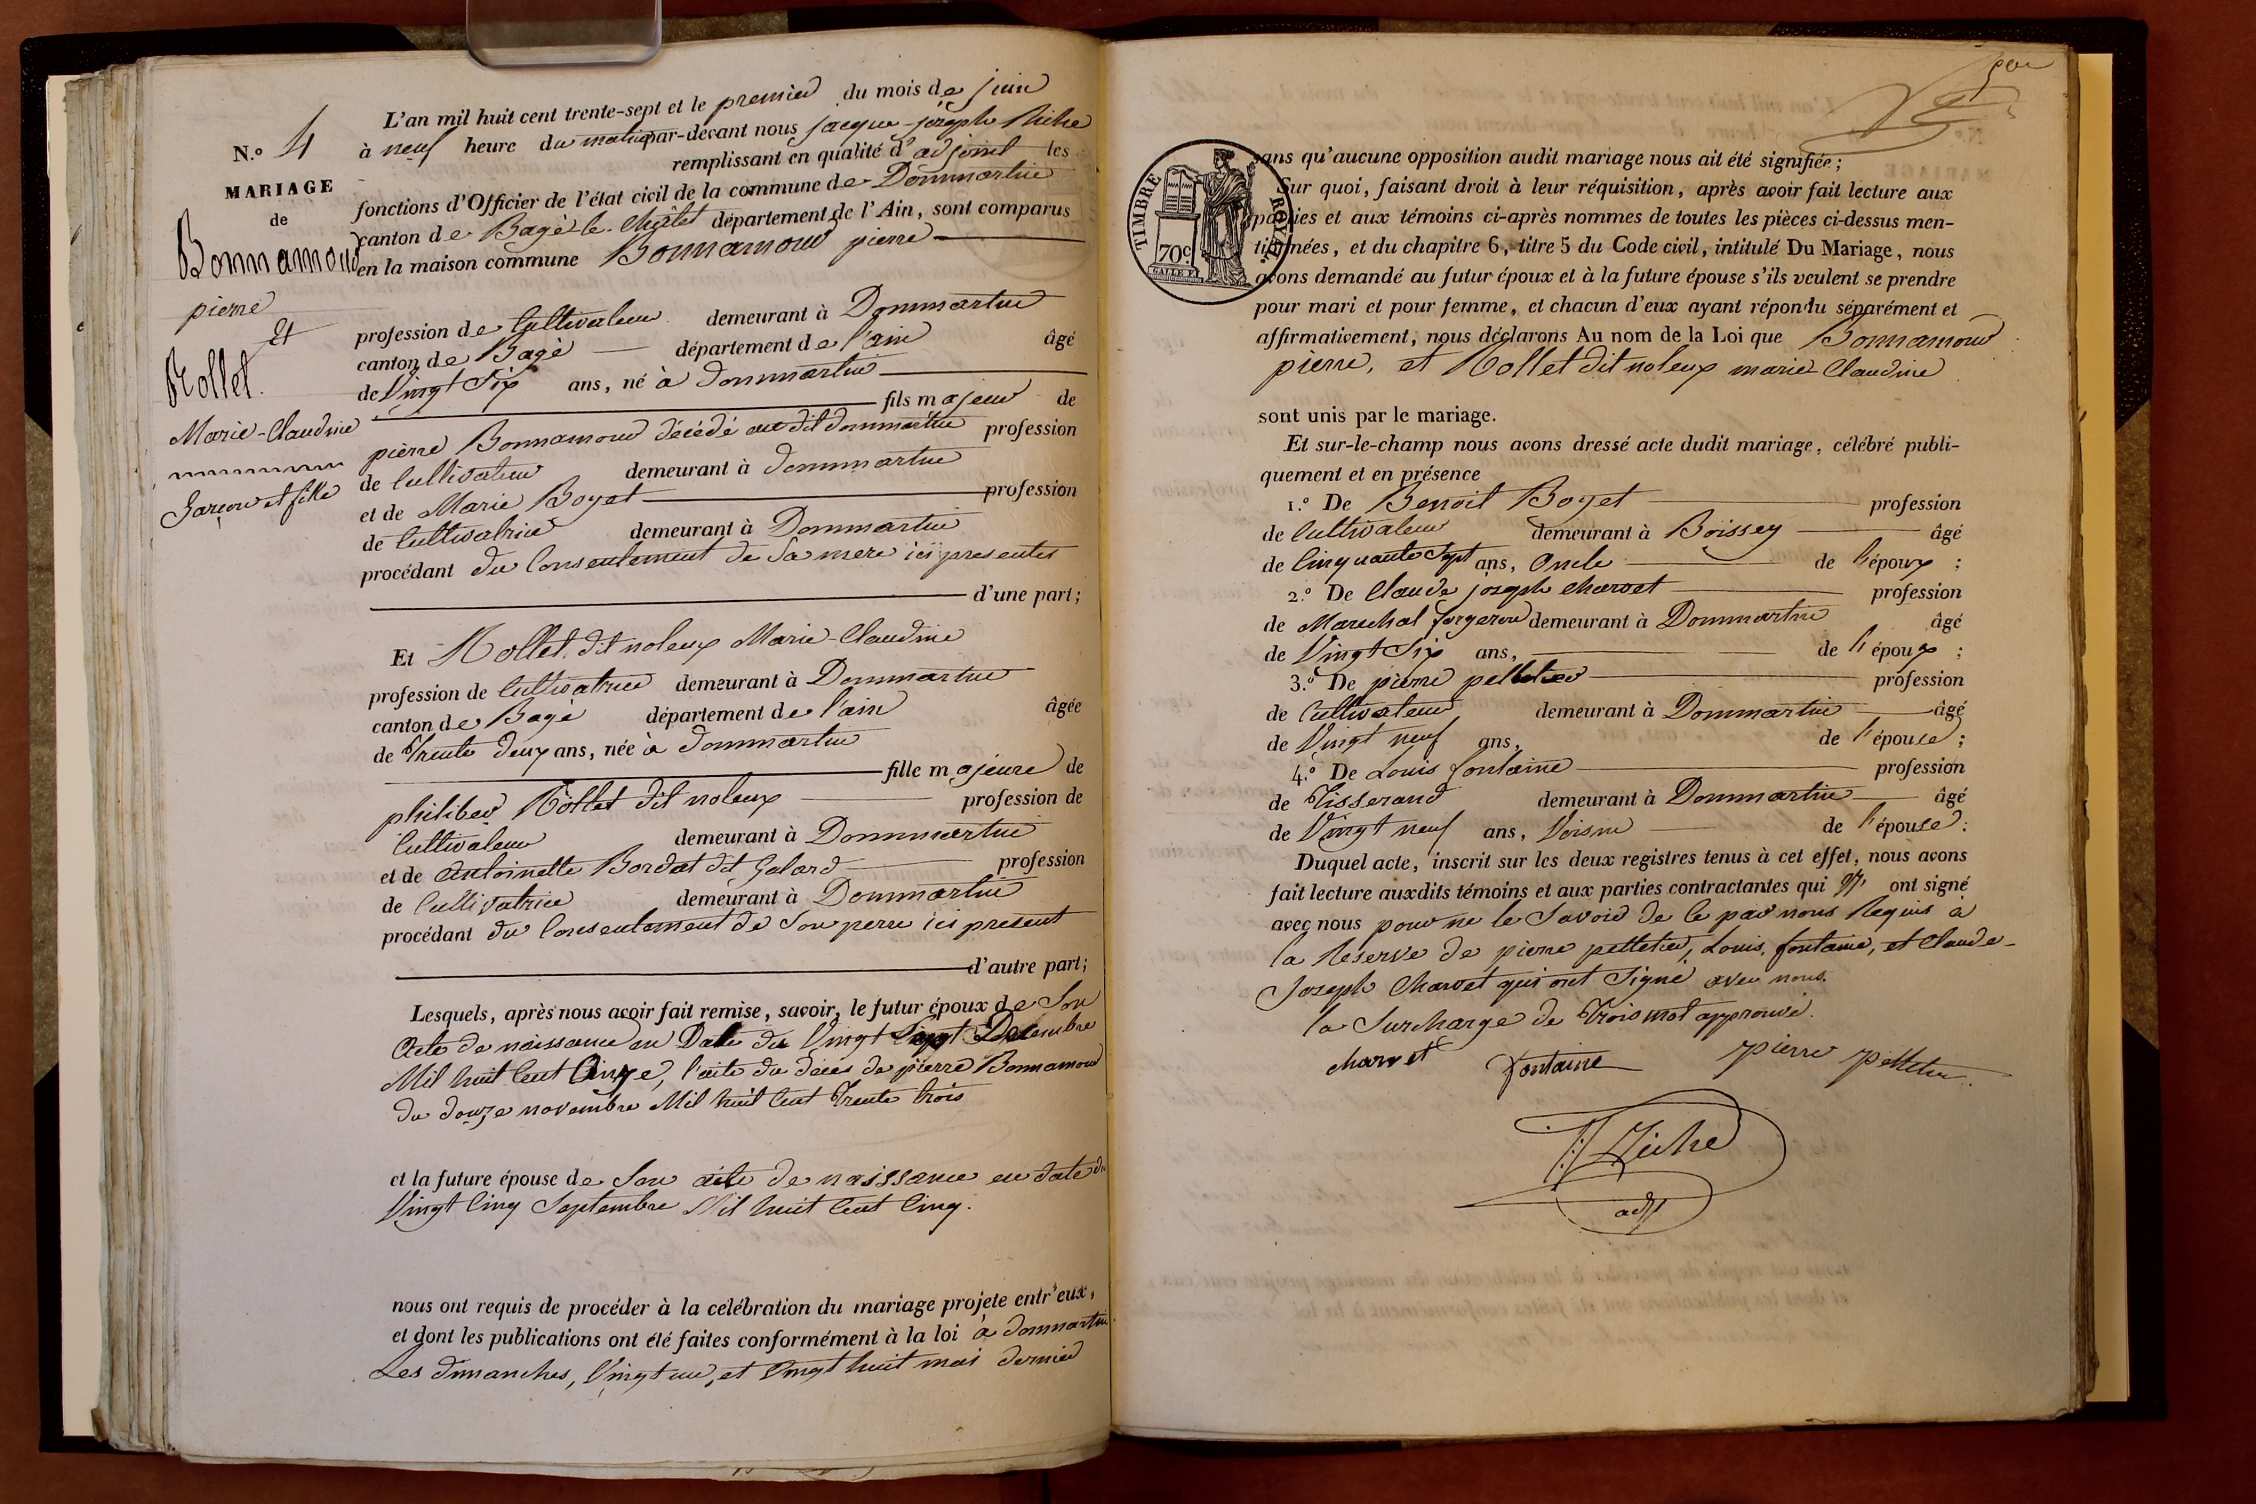 N.º 4
MARIAGE
de
Bonnamour
pierre
et
Rollet
Marie-Claudine
Garçon et fille
L'an mil huit cent trente-sept et le premier du mois de juin
à neuf heure du matin par-devant nous jacque-joseph Riche
remplissant en qualité d'adjoint les
fonctions d'Officier de l'état civil de la commune de Dommartin
canton de Bagé-le-Châtel département de l'Ain, sont comparus
en la maison commune Bonnamour pierre
profession de Cultivateur demeurant à Dommartin
canton de Bagé département de l'ain âgé
de Vingt Six ans, né à dommartin
fils majeur de
pierre Bonnamour décédé au dit dommartin profession
de Cultivateur demeurant à dommartin
et de Marie Boyet profession
de Cultivatrice demeurant à Dommartin
procédant du Consentement de Sa mere ici presente
d'une part;
Et Rollet dit noleux Marie-Claudine
profession de Cultivatrice demeurant à Dommartin
canton de Bagé département de l'ain âgée
de Trente deux ans, née à dommartin
fille majeure de
philiber Rollet dit noleux profession de
Cultivateur demeurant à Dommartin
et de antoinette Bordat dit Galard profession
de Cultivatrice demeurant à Dommartin
procédant du Consentement de Son perre ici présent
d'autre part;
Lesquels, après nous avoir fait remise, savoir, le futur époux de Son
Acte de naissance en Date du Vingt Decembre
Mil huit Cent l'acte du déces de pierre Bonnamour
du douze novembre Mil huit Cent Trente trois
et la future épouse de Son acte de naissance en date du
Vingt Cinq Septembre Mil huit Cent Cinq.
nous ont requis de procéder à la célébration du mariage projeté entr'eux,
et dont les publications ont été faites conformément à la loi à dommartin
Les dimanches, Vingt un, et Vingt huit mai dernier
TIMBRE ROYAL
70c.
sans qu'aucune opposition audit mariage nous ait été signifiée;
Sur quoi, faisant droit à leur réquisition, après avoir fait lecture aux
parties et aux témoins ci-après nommés de toutes les pièces ci-dessus men-
tionnées, et du chapitre 6, titre 5 du Code civil, intitulé Du Mariage, nous
avons demandé au futur époux et à la future épouse s'ils veulent se prendre
pour mari et pour femme, et chacun d'eux ayant répondu séparément et
affirmativement, nous déclarons Au nom de la Loi que Bonnamour
pierre, et Rollet dit noleux marie Claudine
sont unis par le mariage.
Et sur-le-champ nous avons dressé acte dudit mariage, célébré publi-
quement et en présence
1.º De Benoit Boyet profession
de Cultivateur demeurant à Boissey âgé
de Cinquante Sept ans, Oncle de l'époux;
2.º De Claude joseph Charvet profession
de Marechal forgeron demeurant à Dommartin âgé
de Vingt Six ans, de l'époux;
3.º De pierre pelletier profession
de Cultivateur demeurant à Dommartin âgé
de Vingt neuf ans, de l'épouse;
4.º De Louis fontaine profession
de Tisserand demeurant à Dommartin âgé
de Vingt neuf ans, Voisin de l'épouse;
Duquel acte, inscrit sur les deux registres tenus à cet effet, nous avons
fait lecture auxdits témoins et aux parties contractantes qui ont signé
avec nous pour ne le Savoir de ce par nous Requis à
la Reserve de pierre pelletier, Louis fontaine, et Claude-
Joseph Charvet qui ont Signé avec nous.
la Surcharge de Trois mot approuvé.
charvet fontaine pierre pelletier
Riche
adj